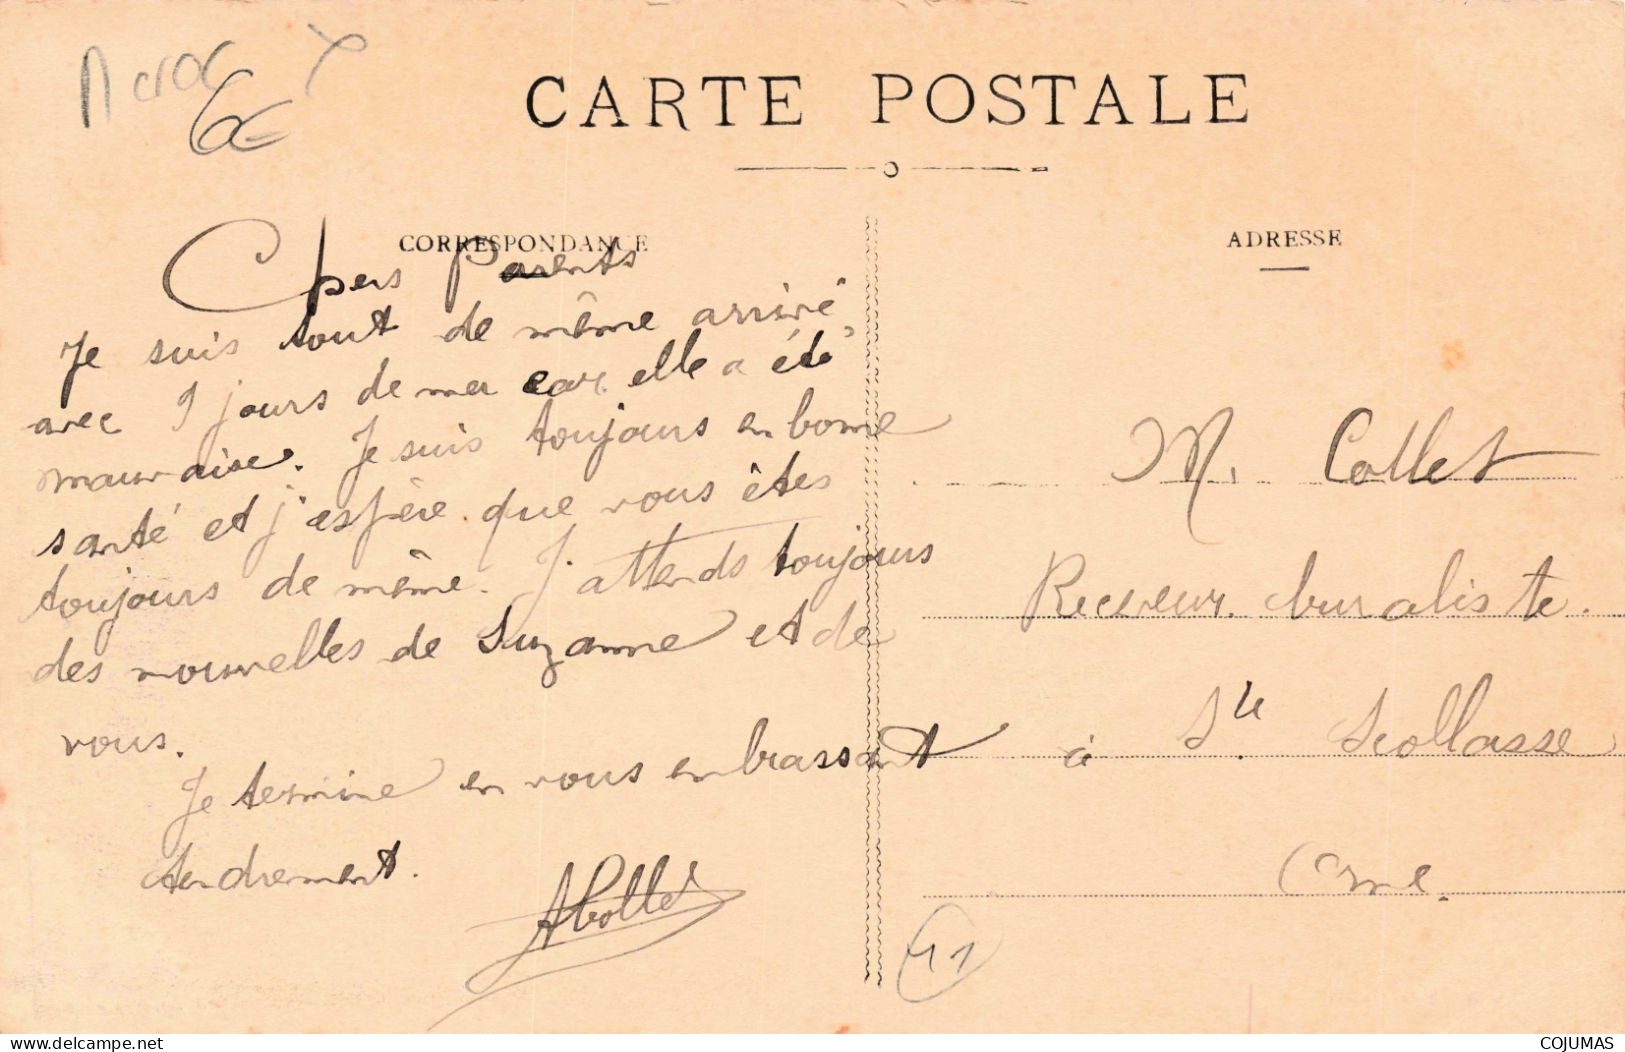 Maroc
6€
CARTE POSTALE
CORRESPONDANCE
Chers Parents
Je suis tout de même arrivé
avec 9 jours de mer car elle a été
mauvaise. Je suis toujours en bonne
santé et j'espère que vous êtes
toujours de même. J'attends toujours
des nouvelles de Suzanne et de
vous.
Je termine en vous embrassant
tendrement.
ACollet
ADRESSE
M. Collet
Receveur buraliste.
à Ste Scollasse
Orne.
41
COJUMAS